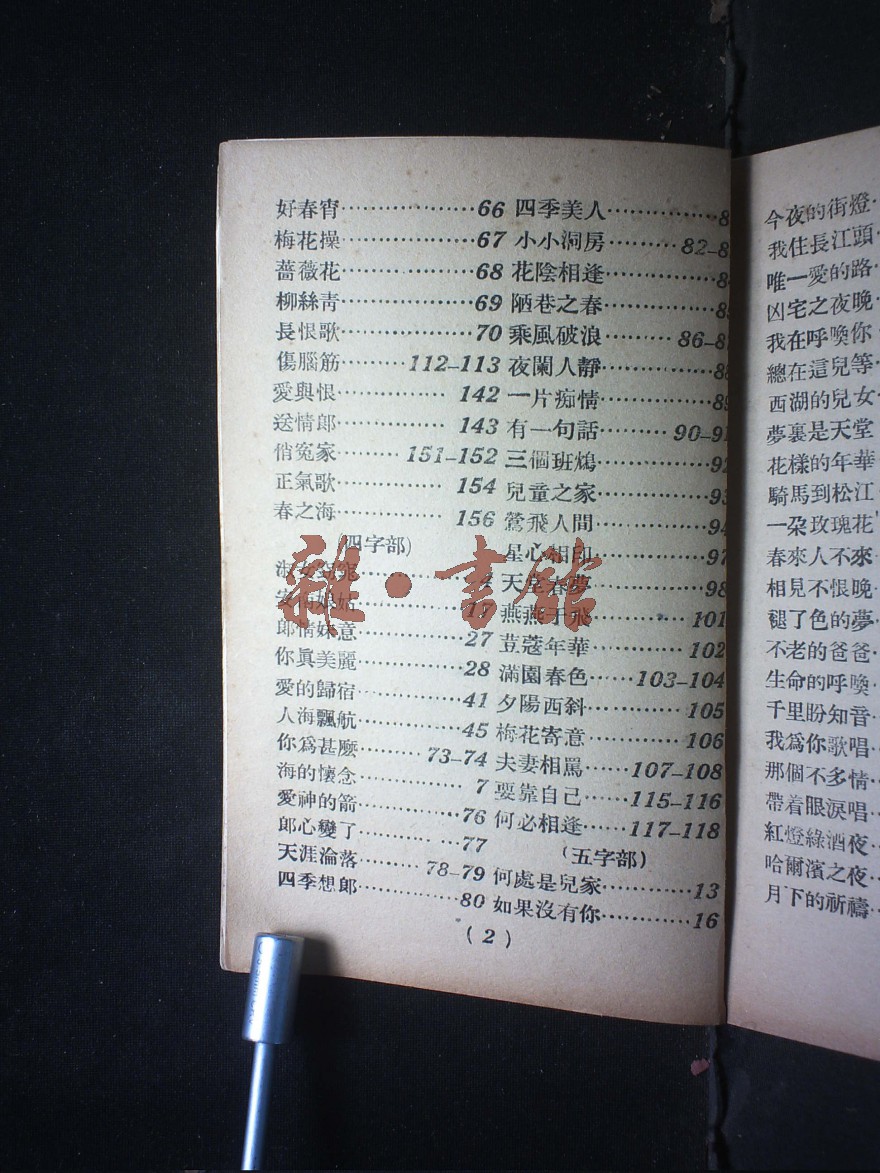 好春宵………………66
梅花操………………67
薔薇花………………68
柳絲靑………………69
長恨歌………………70
傷腦筋………112–113
愛與恨……………142
送情郎……………143
俏冤家………151–152
正氣歌……………154
春之海……………156
(四字部)
郎情妹意……………27
你眞美麗……………28
愛的歸宿……………41
人海飄航……………45
你爲甚麼………73–74
海的懷念……………7
愛神的箭……………76
郎心變了……………77
天涯淪落………78–79
四季想郎……………80
四季美人……………8
小小洞房………82–8
花陰相逢……………8
陋巷之春……………8
乘風破浪………86–8
夜闌人靜……………8
一片痴情……………89
有一句話………90–91
三個班鴆……………92
兒童之家……………93
鶯飛人間……………94
星心相印……………97
天堂春夢……………98
燕燕于飛……………101
荳蔻年華……………102
滿園春色……103–104
夕陽西斜……………105
梅花寄意……………106
夫妻相罵……107–108
要靠自己……115–116
何必相逢……117–118
(五字部)
何處是兒家…………13
如果沒有你…………16
(2)
今夜的街燈
我住長江頭
唯一愛的路
凶宅之夜晚
我在呼喚你
總在這兒等
西湖的兒女
夢裏是天堂
花樣的年華
騎馬到松江
一朶玫瑰花
春來人不來
相見不恨晚
褪了色的夢
不老的爸爸
生命的呼喚
千里盼知音
我爲你歌唱
那個不多情
帶着眼淚唱
紅燈綠酒夜
哈爾濱之夜
月下的祈禱
雜·書館